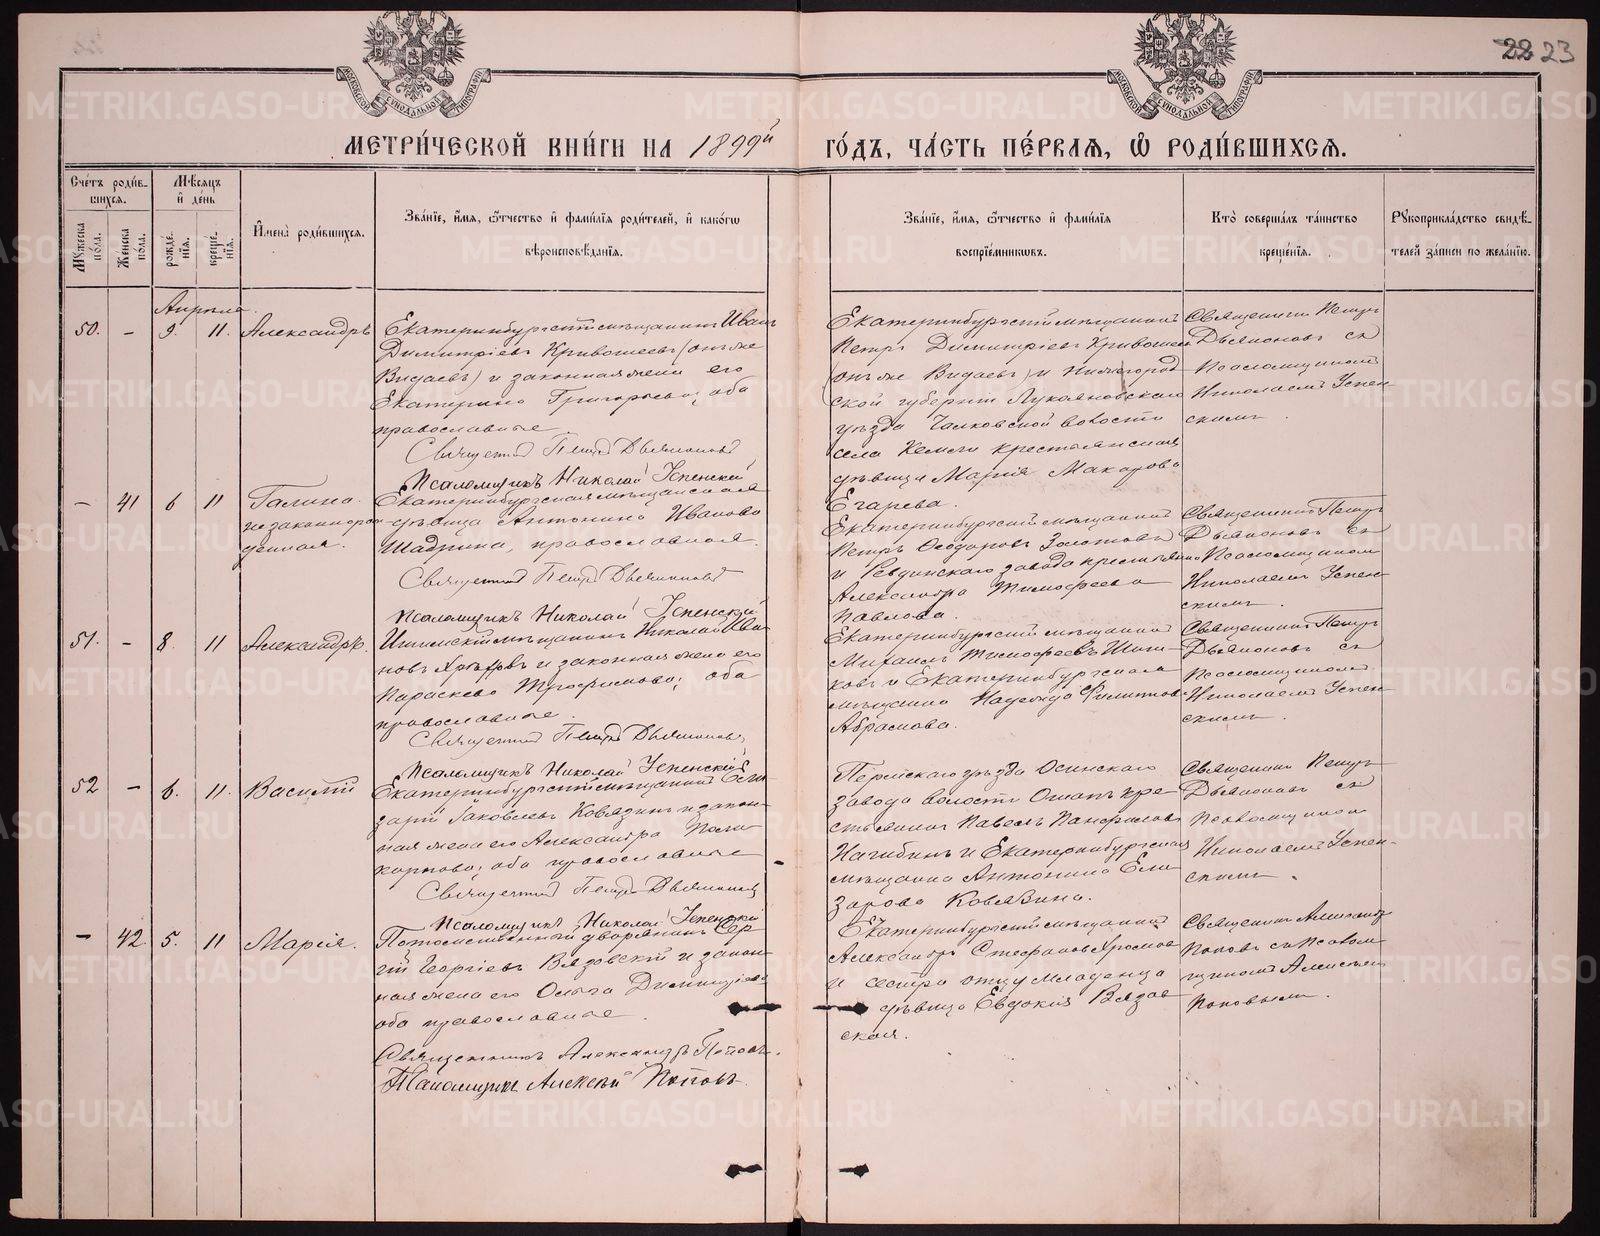 22 23
МЕТРИ́ЧЕСКОЙ КНИ́ГИ НА 1899й ГО́ДЪ, ЧА́СТЬ ПЕ́РВАЯ, Ѽ РОДИ́ВШИХСЯ.
Сче́тъ роди́в-
шихся.
Мꙋжеска
по́ла.
Женска
по́ла.
Мѣсяцъ
и́ де́нь
рожде́-
нїя.
креще́-
нїя.
И҆мена̀ роди́вшихся.
Зва́нїе, и҆́мя, ѻ҆́тчество и҆ фами́лїя роди́телей, и҆ како́гѡ
вѣроисповѣ́данїя.
Зва́нїе, и҆́мя, ѻ҆́тчество и҆ фами́лїя
воспрїе́мниковъ.
Кто̀ соверша́лъ та́инство
креще́нїя.
Рꙋкоприкла́дство свидѣ́-
телей за́писи по жела́нїю.
Апрѣля
50. – 9. 11. Александръ
Екатеринбургскій мѣщанинъ Иванъ
Димитріевъ Кривошеевъ (онъ же
Видаевъ) и законная жена его
Екатерина Григорьева; оба
православные.
Священникъ Петръ Дьяконовъ
Псаломщикъ Николай Успенскій
Екатеринбургскій мѣщанинъ
Петръ Димитріевъ Кривошеев
(онъ же Видаевъ) и Нижегород
ской губерніи Лукояновскаго
уѣзда Чалковской волости
села Кемли крестьянская
дѣвица Марія Макарова
Егарева.
Священникъ Петръ
Дьяконовъ съ
Псаломщикомъ
Николаемъ Успен-
скимъ.
– 41 6 11 Галина
незаконнорож
денная.
Екатеринбургская мѣщанская
дѣвица Антонина Иванова
Шадрина, православная.
Священникъ Петръ Дьяконовъ
Псаломщикъ Николай Успенскій
Екатеринбургскій мѣщанинъ
Петръ Ѳеодоровъ Золотовъ
и Ревдинскаго завода
Александра Тимофеева
Павлова.
Священникъ Петръ
Дьяконовъ съ
Псаломщикомъ
Николаемъ Успен-
скимъ.
51. – 8. 11 Александръ.
мѣщанинъ Николай Ива-
новъ и законная жена его
Параскева Трофимова; оба
православные.
Священникъ Петръ Дьяконовъ
Псаломщикъ Николай Успенскій
Екатеринбургскій мѣщанинъ
Михаилъ Тимофеевъ
и Екатеринбургская
мѣщанка Надежда
Абрамова.
Священникъ Петръ
Дьяконовъ съ
Псаломщикомъ
Николаемъ Успен-
скимъ.
52 – 6. 11. Василій
Екатеринбургскій мѣщанинъ Ели-
зарій Іаковлевъ Ковязинъ и закон-
ная жена его Александра Поли-
карпова; оба православные
Священникъ Петръ Дьяконовъ
Псаломщикъ Николай Успенскій
Осинскаго
завода волости кре-
стьянинъ Павелъ Панфиловъ
Нагибинъ и Екатеринбургская
мѣщанка Антонина Ели
зарова Ковязина.
Священникъ Петръ
Дьяконовъ съ
Псаломщикомъ
Николаемъ Успен-
скимъ.
– 42 5. 11 Марія.
Потомственный дворянинъ Сер
гій Георгіевъ Вязовскій и закон-
ная жена его Ольга Димитріева
оба православные.
Священникъ Александръ Поповъ.
Псаломщикъ Алексѣй Поповъ.
Екатеринбургскій мѣщанинъ
Александръ Стефановъ
и сестра отцу младенца
дѣвица Евдокія Вязов
ская.
Священникъ Александр
Поповъ съ Псалом-
щикомъ Алексѣемъ
Поповымъ.
METRIKI.GASO-URAL.RU